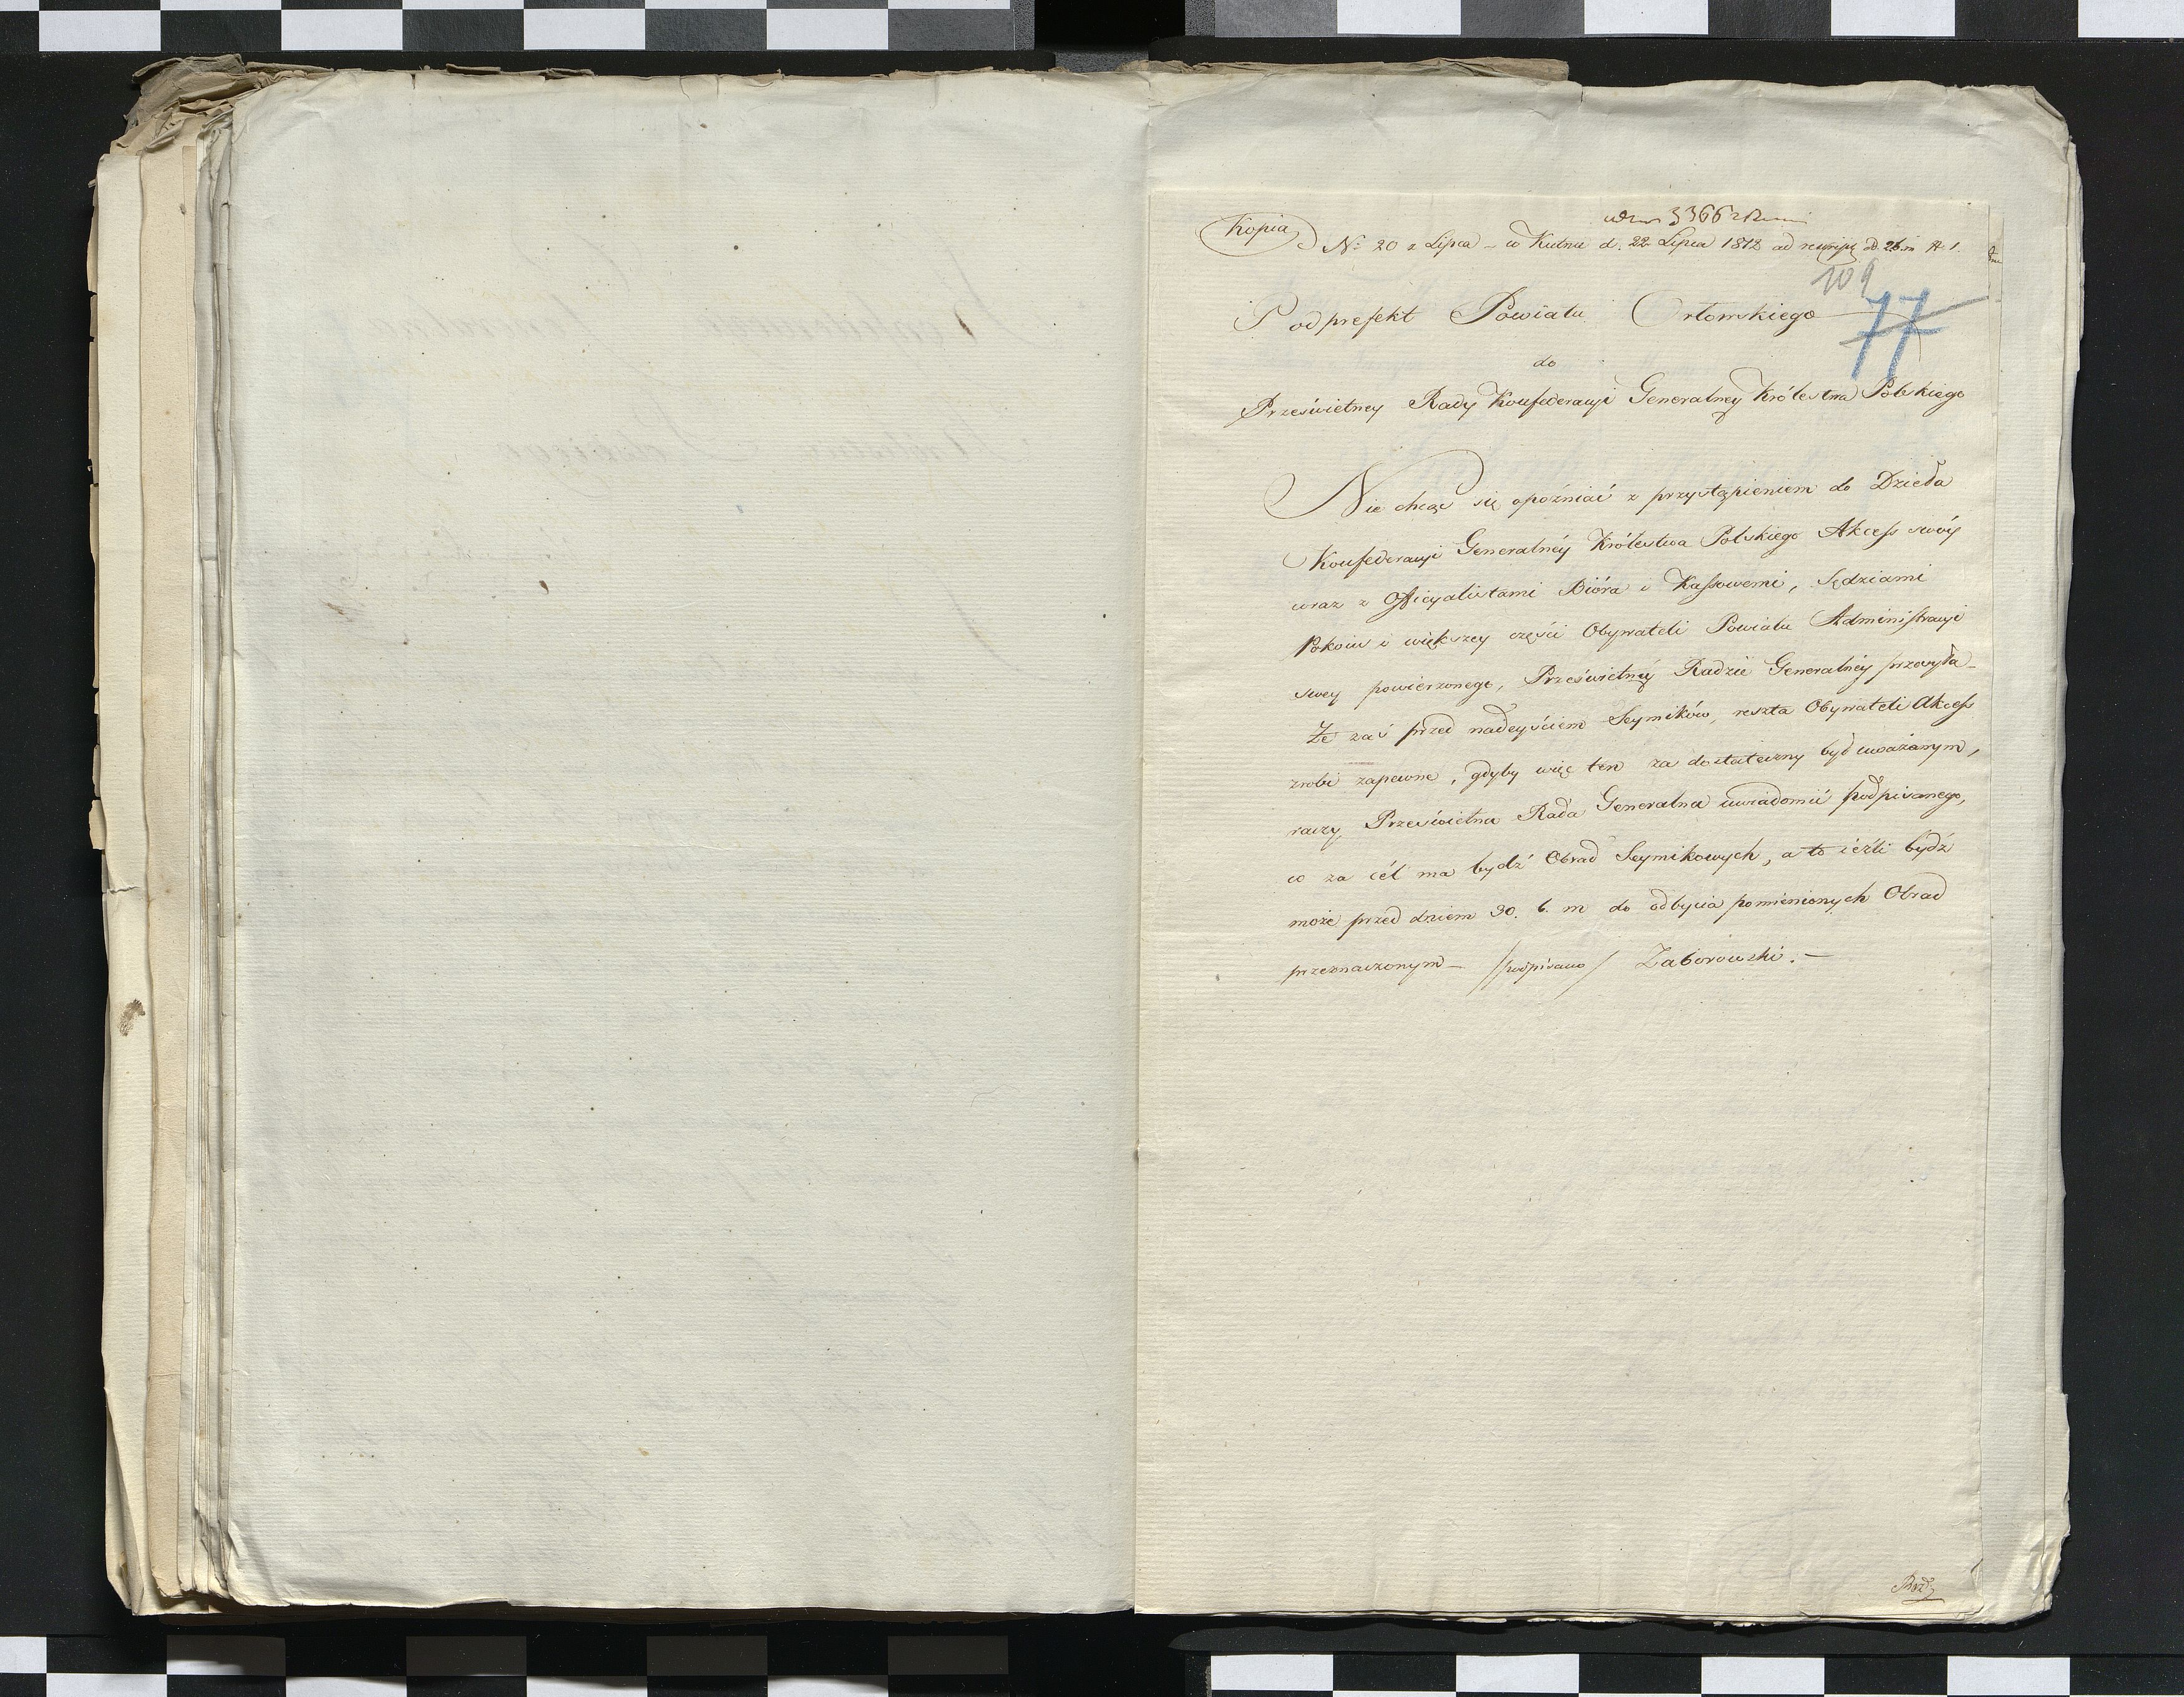 3366
Kopia
No 20 z Lipca – w Kutnie d. 22 Lipca 1812 ad
109
77
Podprefekt Powiatu Orłowskiego
do
Prześwietney Rady Konfederacyi Generalney Królestwa Polskiego
Nie chcąc się opóźniać z przystąpieniem do Dzieła
Konfederacyi Generalnéy Królestwa Polskiego Akcess swóy
wraz z Officyalistami Bióra i Kassowemi, Sędziami
Pokoiu i większey części Obywateli Powiatu Administracyi
swey powierzonego, Prześwietnéy Radzie Generalnéy przesyła –
Że zaś przed nadeyściem Seymików, reszta Obywateli Akcess
zrobi zapewne, gdyby więc ten za dostateczny był uważanym,
raczy Prześwietna Rada Generalna uwiadomić podpisanego,
co za cél ma bydź Obrad Seymikowych, a to ieżli bydź
może przed dniem 30. b. m do odbycia pomienionych Obrad
przeznaczonym – /podpisano/ Zaborowski. –